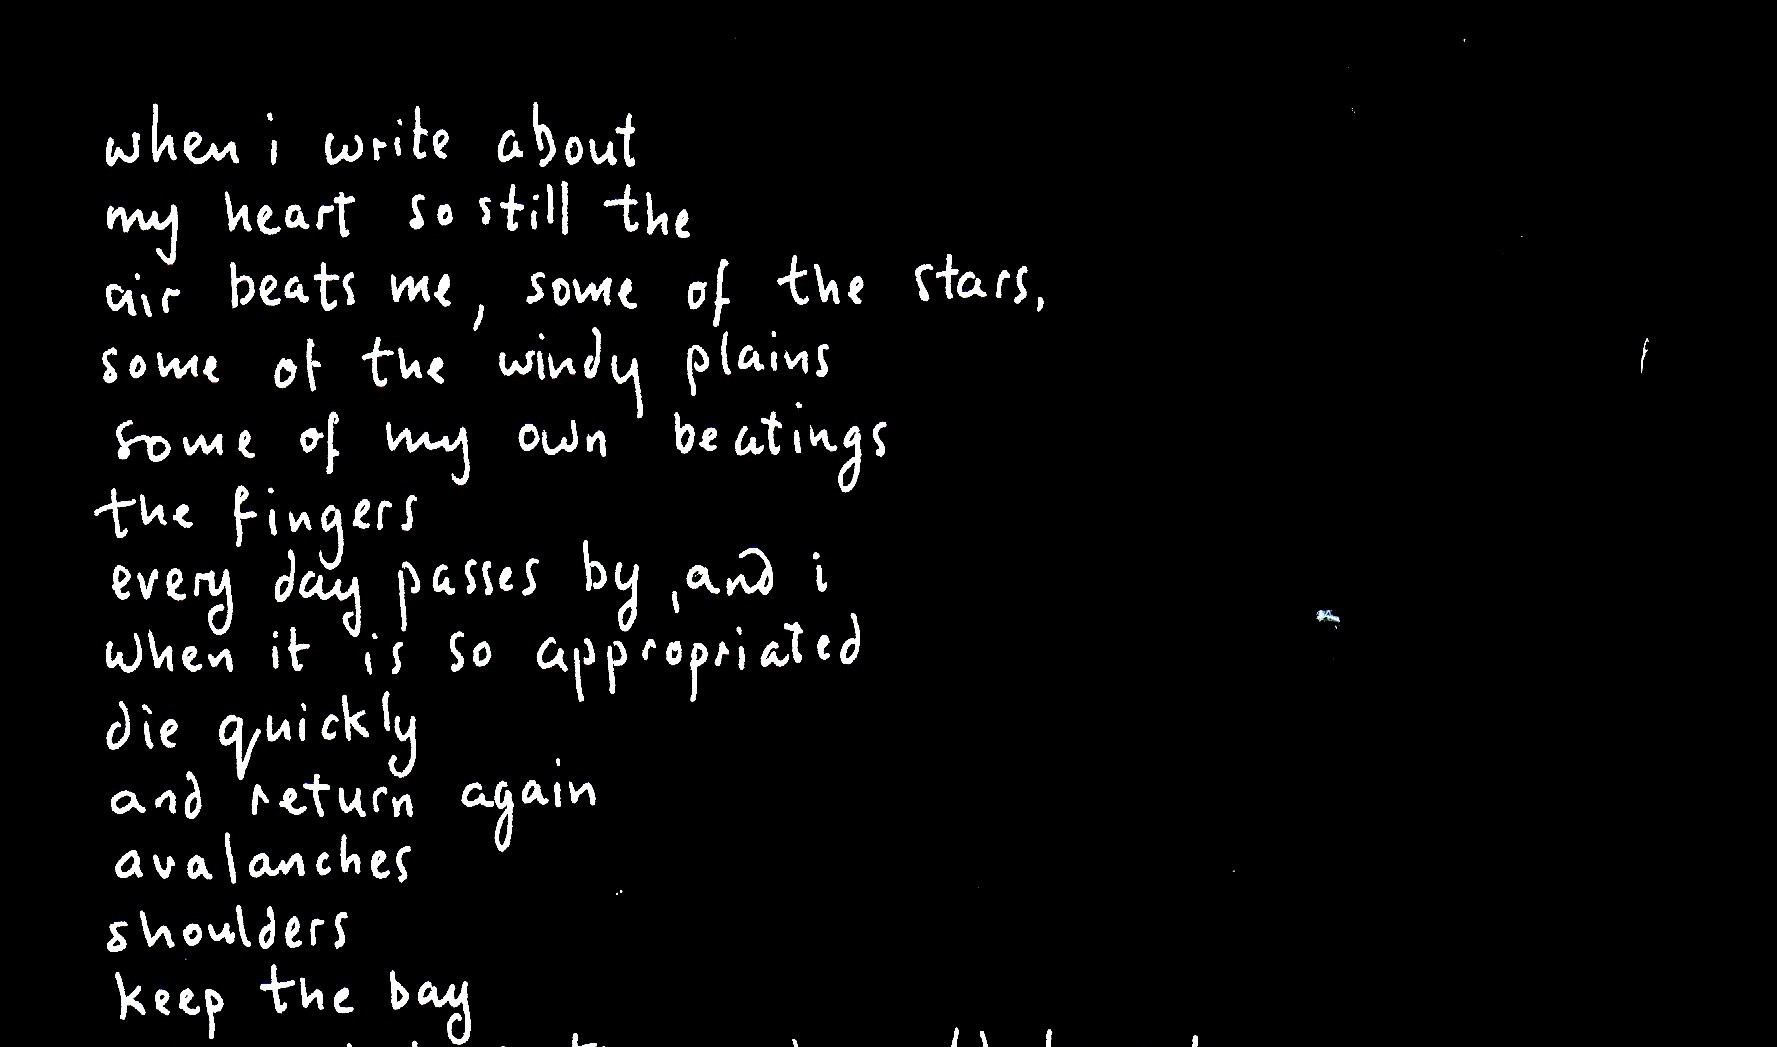 when i write about
my heart so still the
air beats me, some of the stars,
some of the windy plains
some of my own beatings
the fingers
every day passes by, and i
when it is so appropriated
die quickly
and return again
avalanches
shoulders
keep the bay